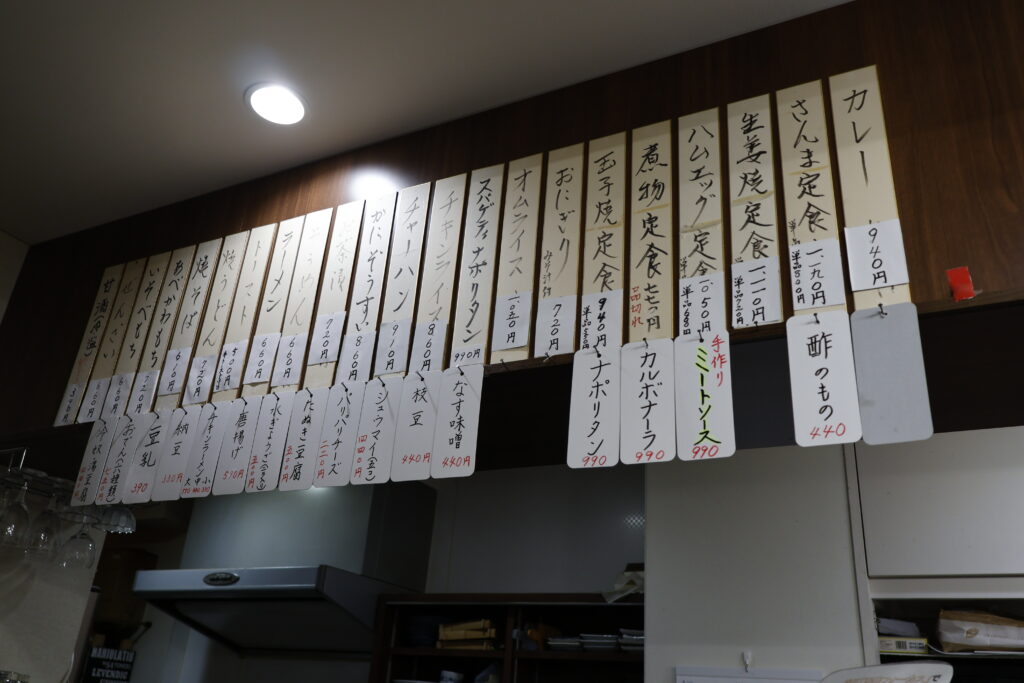 カレー
940円
さんま定食
単品800円
一、一九〇円
生姜焼定食
単品720円
一、一一〇円
ハムエッグ定食
単品680円
一、〇五〇円
煮物定食
一品切れ
玉子焼定食
940円
おにぎり
みそ汁付
720円
オムライス
スパゲティナポリタン
990円
チキンライス
860円
チャーハン
910円
かにぞうすい
860円
720円
660円
ラーメン
660円
トースト
焼うどん
焼そば
720円
あべかわもち
610円
いそべもち
720円
酢のもの
440
手作り
ミートソース
990
カルボナーラ
990
ナポリタン
990
なす味噌
440円
枝豆
440円
シュウマイ(五コ)
四四〇円
パリパリチーズ
二二〇円
たぬき豆腐
水ぎょうざ
唐揚げ
チキンラーメン
大 中 小
納豆
330円
豆乳
390
おでん
MARIOLATIO
LEVENDIG